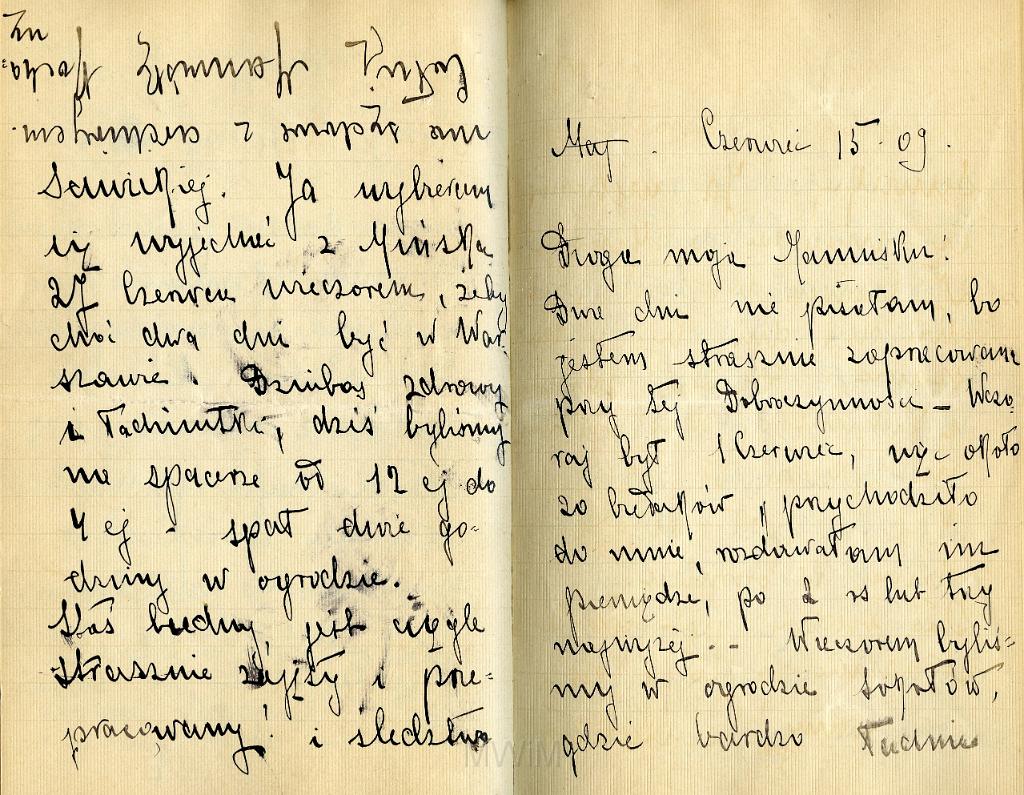 Całuję Mamusię Kocha=
ną
Sawickiej. Ja wybieram
się wyjechać z Mińska
27 Czerwca wieczorem, żeby
choć dwa dni być w War
szawie. Dziubas zdrowy
i Tadziutka, dziś byliśmy
na spacerze od 12 ej do
4 ej - spał dwie go=
dziny w ogrodzie.
Staś biedny, jest ciągle
strasznie zajęty i prze=
pracowany! i śledztwa
Maj . Czerwiec 15 - 09.
Droga moja Mamuśku!
Dwa dni nie pisałam, bo
jestem strasznie zapracowana
przy tej Dobroczynności - Wczo
raj był 1 Czerwiec, więc około
20 biedaków przychodziło
do mnie, rozdawałam im
pieniądze, po 2 rs lub trzy
najwyżej - - Wieczorem byliś=
my w ogrodzie Sokołów,
gdzie bardzo ładnie
MWiM